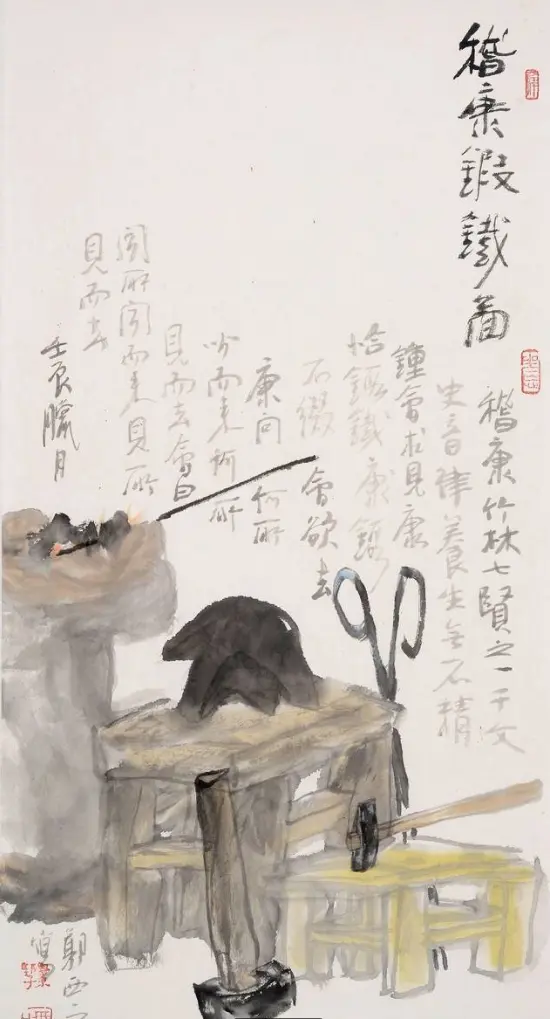 嵇康鍛鐵圖
嵇康竹林七賢之一于文
史音律養生無不精
鐘會求見康
恰鍛鐵康鍛
不綴會欲去
康问何所
闻而来何所
見而去會曰
闻所闻而来見所
見而去
壬辰臘月
郭西元